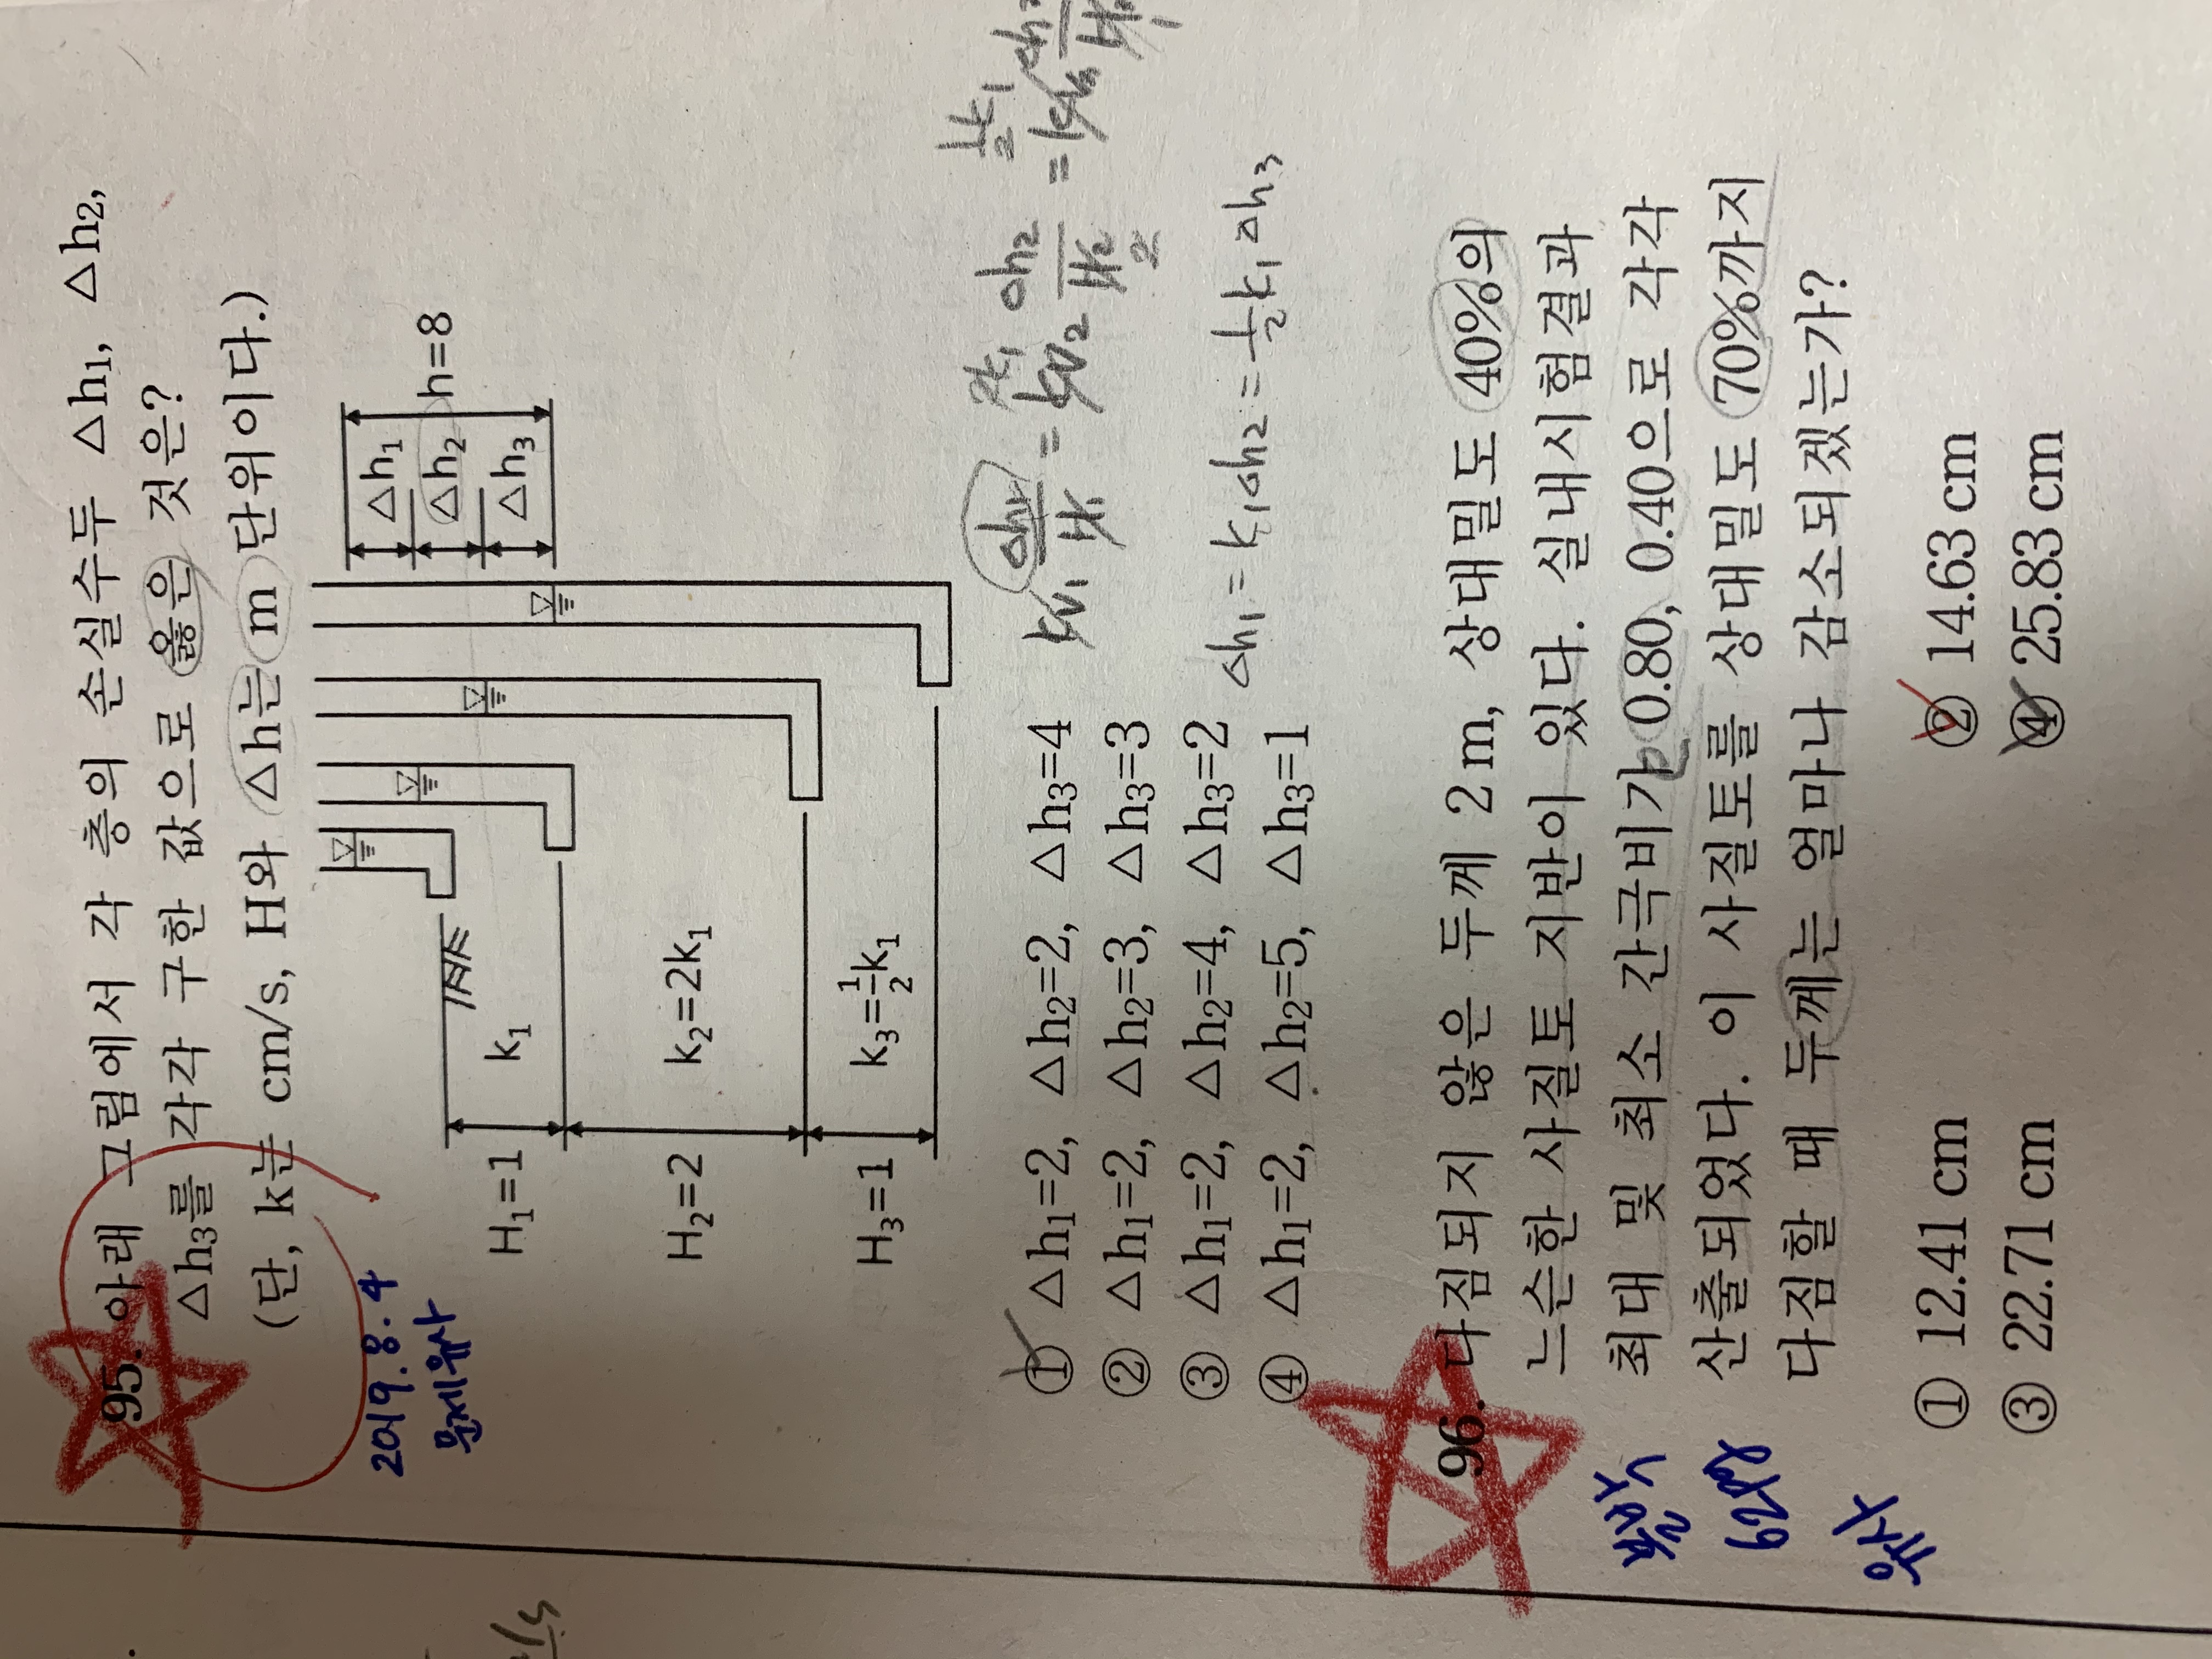 95. 아래 그림에서 각 층의 손실수두 △h₁, △h₂,
△h₃를 각각 구한 값으로 옳은 것은?
(단, k는 cm/s, H와 △h는 m 단위이다.)
2019.8.4
문제유사
△h₁
△h₂
△h₃
h=8
H₁=1
k₁
H₂=2
k₂=2k₁
H₃=1
k₃=½k₁
① △h₁=2, △h₂=2, △h₃=4
② △h₁=2, △h₂=3, △h₃=3
③ △h₁=2, △h₂=4, △h₃=2
④ △h₁=2, △h₂=5, △h₃=1
△h₁ = k₁△h₂ = ½k₁△h₃
96. 다짐되지 않은 두께 2 m, 상대밀도 40%의
느슨한 사질토 지반이 있다. 실내시험결과
최대 및 최소 간극비가 0.80, 0.40으로 각각
산출되었다. 이 사질토를 상대밀도 70%까지
다짐할 때 두께는 얼마나 감소되겠는가?
유사
① 12.41 cm ② 14.63 cm
③ 22.71 cm ④ 25.83 cm